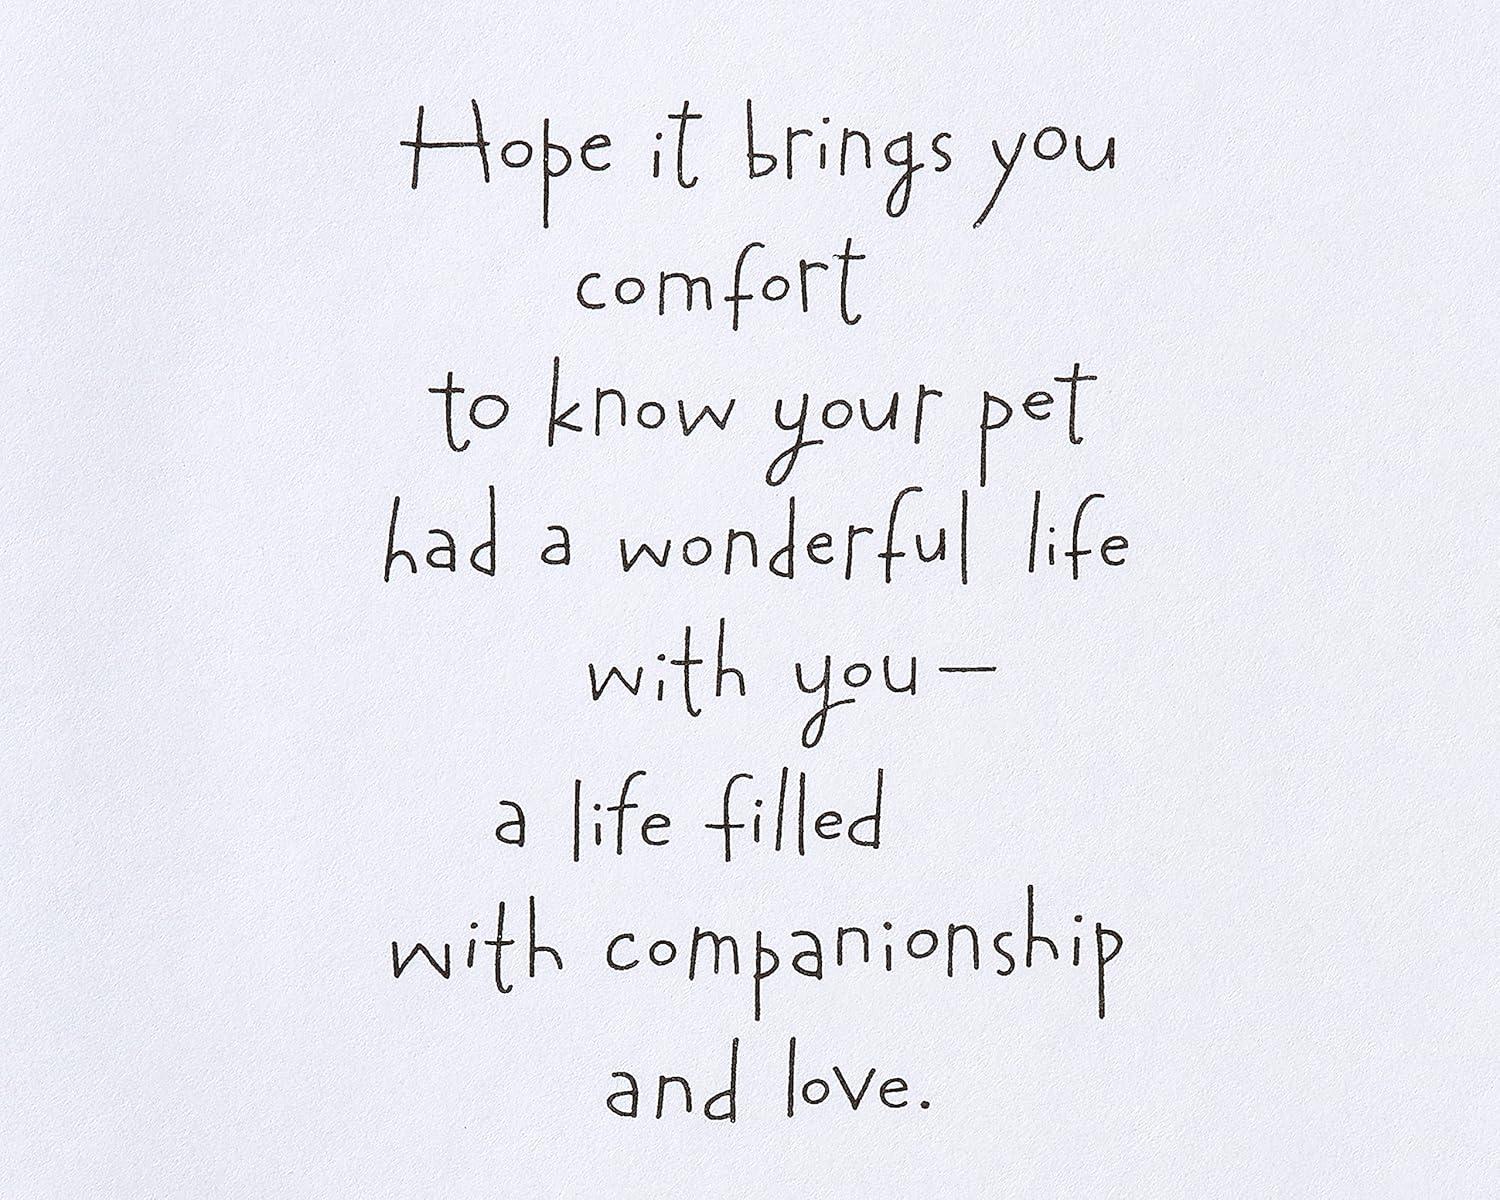 Hope it brings you
comfort
to know your pet
had a wonderful life
with you—
a life filled
with companionship
and love.